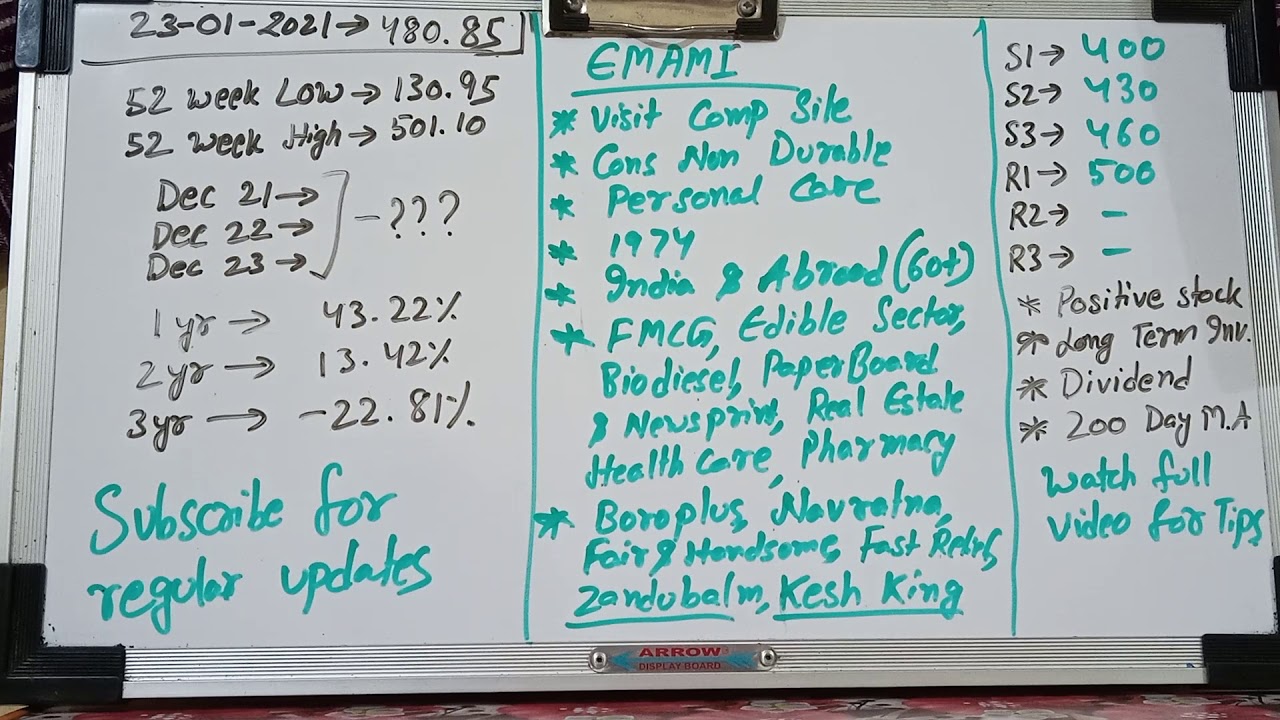 23-01-2021→480.85
52 week Low→130.95
52 week High→501.10
Dec 21→
Dec 22→ -???
Dec 23→
1 yr→ 43.22%
2 yr→ 13.42%
3 yr→ -22.81%
Subscribe for
regular updates
EMAMI
* Visit Comp Site
* Cons Non Durable
* Personal Care
* 1974
* India & Abroad (60+)
* FMCG, Edible Sector,
Biodiesel, PaperBoard
& Newsprint, Real Estate
Health Care, Pharmacy
* Boroplus, Navratna,
Fair & Handsome, Fast Relief,
Zandubalm, Kesh King
S1→ 400
S2→ 430
S3→ 460
R1→ 500
R2→ -
R3→ -
* Positive stock
* Long Term Inv.
* Dividend
* 200 Day M.A
Watch full
video for Tips
ARROW
DISPLAY BOARD